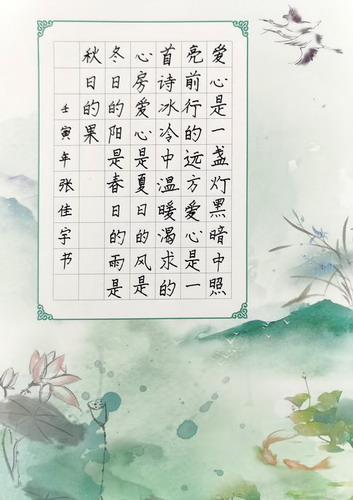 爱心是一盏灯黑暗中照
亮前行的远方爱心是一
首诗冰冷中温暖渴求的
心房爱心是夏日的风是
冬日的阳是春日的雨是
秋日的果
壬寅年张佳宇书